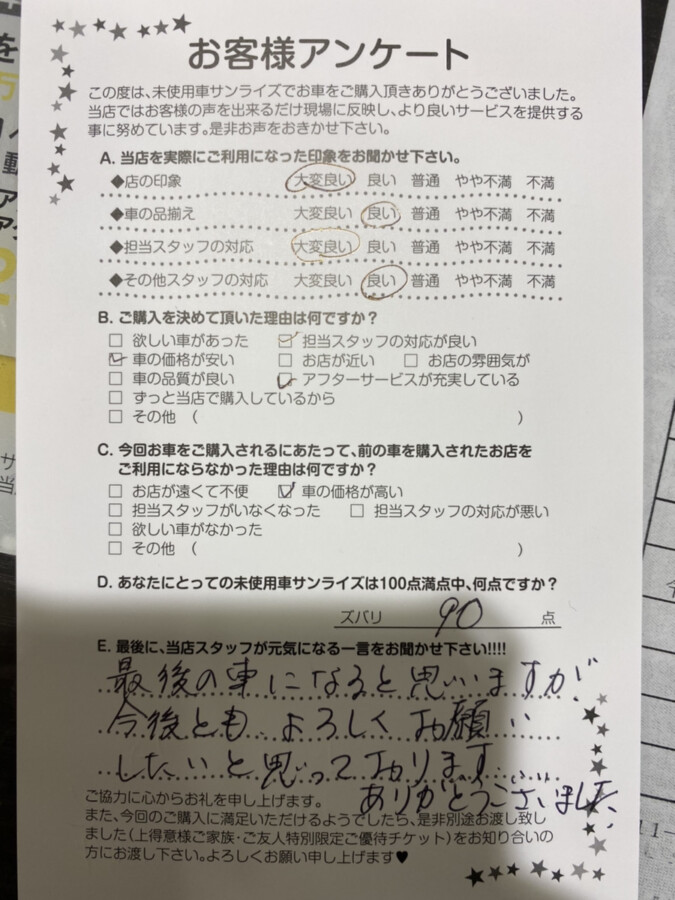 お客様アンケート
この度は、未使用車サンライズでお車をご購入頂きありがとうございました。
当店ではお客様の声を出来るだけ現場に反映し、より良いサービスを提供する
事に努めています。是非お声をおきかせ下さい。
A. 当店を実際にご利用になった印象をお聞かせ下さい。
◆店の印象 大変良い 良い 普通 やや不満 不満
◆車の品揃え 大変良い 良い 普通 やや不満 不満
◆担当スタッフの対応 大変良い 良い 普通 やや不満 不満
◆その他スタッフの対応 大変良い 良い 普通 やや不満 不満
B. ご購入を決めて頂いた理由は何ですか？
□ 欲しい車があった ☑ 担当スタッフの対応が良い
☑ 車の価格が安い □ お店が近い □ お店の雰囲気が
□ 車の品質が良い ☑ アフターサービスが充実している
□ ずっと当店で購入しているから
□ その他 （ ）
C. 今回お車をご購入されるにあたって、前の車を購入されたお店を
ご利用にならなかった理由は何ですか？
□ お店が遠くて不便 ☑ 車の価格が高い
□ 担当スタッフがいなくなった □ 担当スタッフの対応が悪い
□ 欲しい車がなかった
□ その他 （ ）
D. あなたにとっての未使用車サンライズは100点満点中、何点ですか？
ズバリ 90 点
E. 最後に、当店スタッフが元気になる一言をお聞かせ下さい!!!!
最後の車になると思いますが、
今後とも、よろしくお願い
したいと思っております
ありがとうございました。
ご協力に心からお礼を申し上げます。
また、今回のご購入に満足いただけるようでしたら、是非別途お渡し致し
ました（上得意様ご家族・ご友人特別限定ご優待チケット）をお知り合いの
方にお渡し下さい。よろしくお願い申し上げます♥